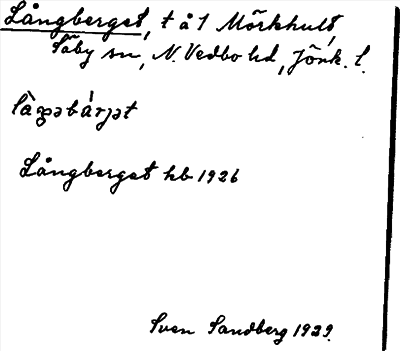 Långberget, t å 1 Mörkhult,
Säby sn, N. Vedbo hd, Jönk. l.
Långberget hb 1926
Sven Sandberg 1929.